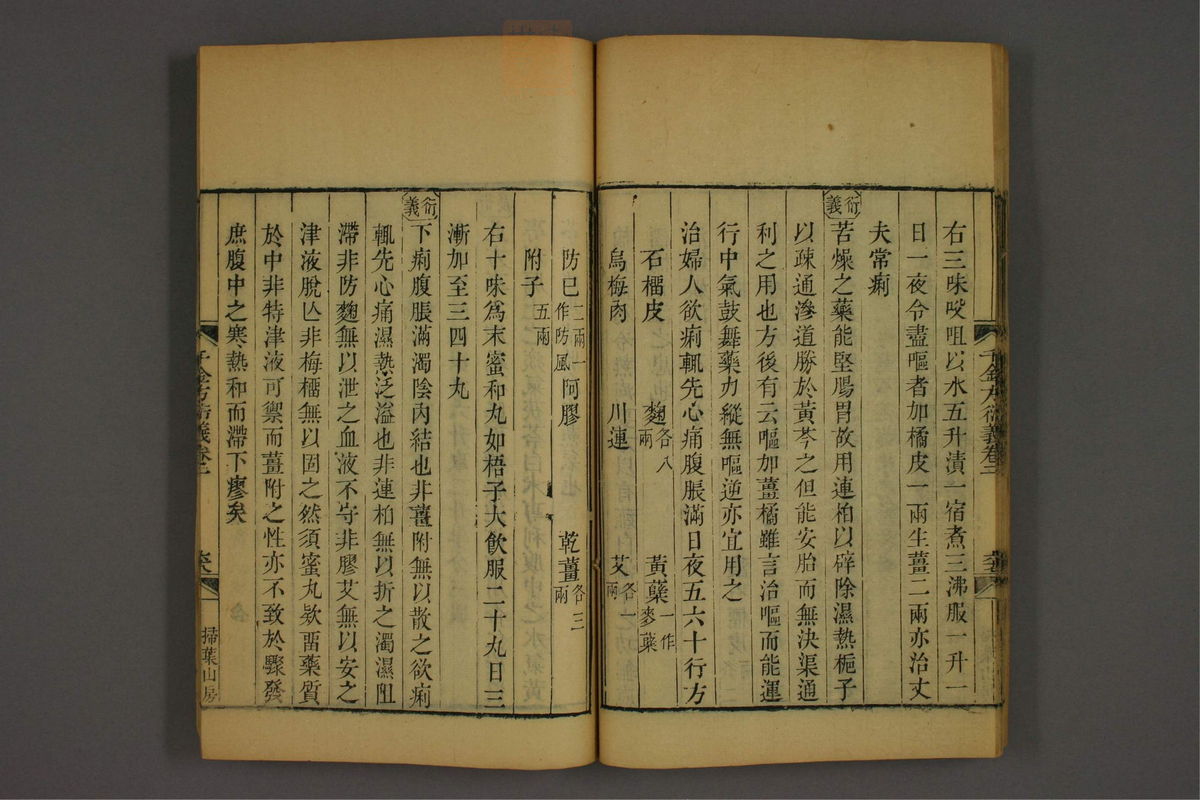 右三味㕮咀以水五升漬一宿煮三沸服一升一
日一夜令盡嘔者加橘皮一兩生薑二兩亦治丈
夫常痢
衍義
苦燥之藥能堅腸胃故用連柏以辟除濕熱梔子
以疎通滲道勝於黃芩之但能安胎而無決渠通
利之用也方後有云嘔加薑橘雖言治嘔而能運
行中氣鼓舞藥力縱無嘔逆亦宜用之
治婦人欲痢輒先心痛腹脹滿日夜五六十行方
石榴皮 麴各八兩 黃蘖一作麥蘖
烏梅肉 川連 艾各一兩
防已二兩一作防風 阿膠 乾薑各三兩
附子五兩
右十味爲末蜜和丸如梧子大飮服二十丸日三
漸加至三四十丸
衍義
下痢腹脹滿濁陰內結也非薑附無以散之欲痢
輒先心痛濕熱泛溢也非連柏無以折之濁濕阻
滯非防麴無以泄之血液不守非膠艾無以安之
津液脫亾非梅榴無以固之然須蜜丸欵畱藥質
於中非特津液可禦而薑附之性亦不致於驟發
庶腹中之寒熱和而滯下瘳矣
千金方衍義卷三
千金方衍義卷三
掃葉山房